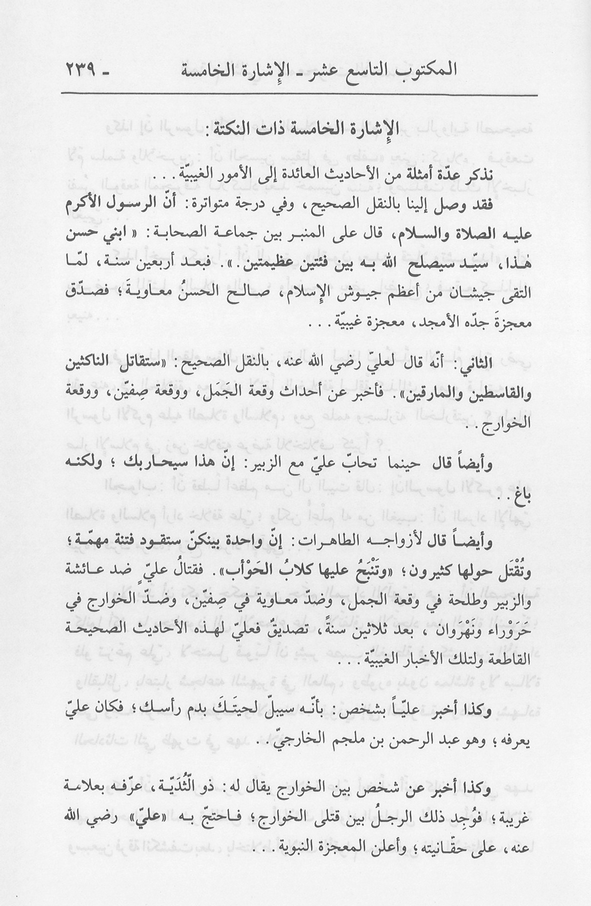 المكتوب التاسع عشر ـ الإشارة الخامسة ـ ٢٣٩
الإشارة الخامسة ذات النكتة:
نذكر عدّة أمثلة من الأحاديث العائدة إلى الأمور الغيبيّة...
فقد وصل إلينا بالنقل الصحيح، وفي درجة متواترة: أنّ الرسول الأكرم
عليه الصلاة والسلام، قال على المنبر بين جماعة الصحابة: « ابني حسن
هٰذا، سيّد سيصلح الله به بين فئتين عظيمتين.». فبعد أربعين سنة، لمّا
التقى جيشان من أعظم جيوش الإسلام، صالح الحسنُ معاويةَ؛ فصدّق
معجزةَ جدّه الأمجد، معجزة غيبيّة...
الثاني: أنّه قال لعليّ رضي الله عنه، بالنقل الصحيح: «ستقاتل الناكثين
والقاسطين والمارقين». فأخبر عن أحداث وقعة الجَمَل، ووقعة صِفيّن، ووقعة
الخوارج..
وأيضاً قال حينما تحابّ عليّ مع الزبير: إنّ هذا سيحاربك ؛ ولكنه
باغ..
وأيضاً قال لأزواجه الطاهرات: إنّ واحدة بينكنّ ستقود فتنة مهمّة؛
وتُقْتَل حولها كثيرون؛ «وتَنْبَحُ عليها كلابُ الحَوْأب». فقتالُ عليّ ضد عائشة
والزبير وطلحة في وقعة الجمل، وضدّ معاوية في صِفيّن، وضدّ الخوارج في
حَرَوْراء ونَهْرَوان ، بعد ثلاثين سنةً، تصديقٌ فعليّ لهذه الأحاديث الصحيحة
القاطعة ولتلك الأخبار الغيبيّة...
وكذا أخبر عليّاً بشخص: بأنّه سيبلّ لحيتَكَ بدم رأسك؛ فكان عليّ
يعرفه؛ وهو عبد الرحمن بن ملجم الخارجيّ...
وكذا أخبر عن شخص بين الخوارج يقال له: ذو الثُّدَيّة، عرّفه بعلامة
غريبة؛ فوُجِد ذلك الرجلُ بين قتلى الخوارج؛ فاحتجّ به «عليّ» رضي الله
عنه، على حقّانيته؛ وأعلن المعجزة النبوية...